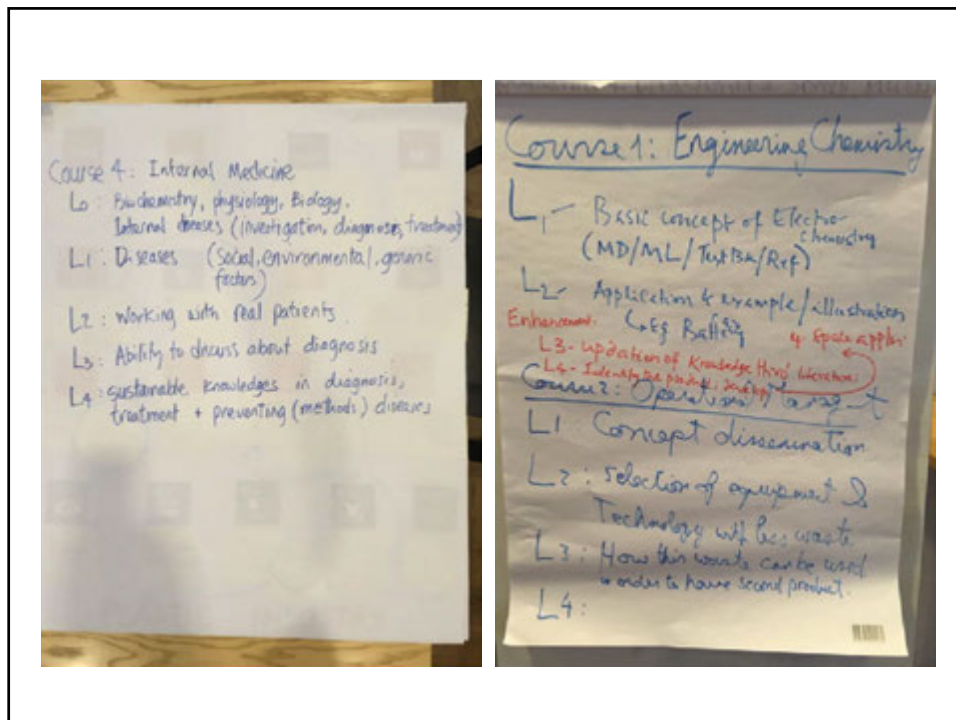 Course 4: Internal Medicine
L0: Biochemistry, physiology, Biology,
Internal diseases (investigation, diagnosis, treatment)
L1: Diseases (Social, environmental, genetic
factors)
L2: working with real patients
L3: Ability to discuss about diagnosis
L4: sustainable knowledges in diagnosis,
treatment + preventing (methods) diseases
Course 1: Engineering Chemistry
L1- Basic concept of Electro-
chemistry
(MD/ML/Text Bk/Ref)
L2- Application & example/illustration
Enhancement. ↳ Eg Battery
L3- updation of Knowledge thro' literature
L4- Identify the product
Course 2: Operation
L1 Concept dissemination
L2: Selection of equipment &
Technology with less waste
L3: How this waste can be used
in order to have second product.
L4: